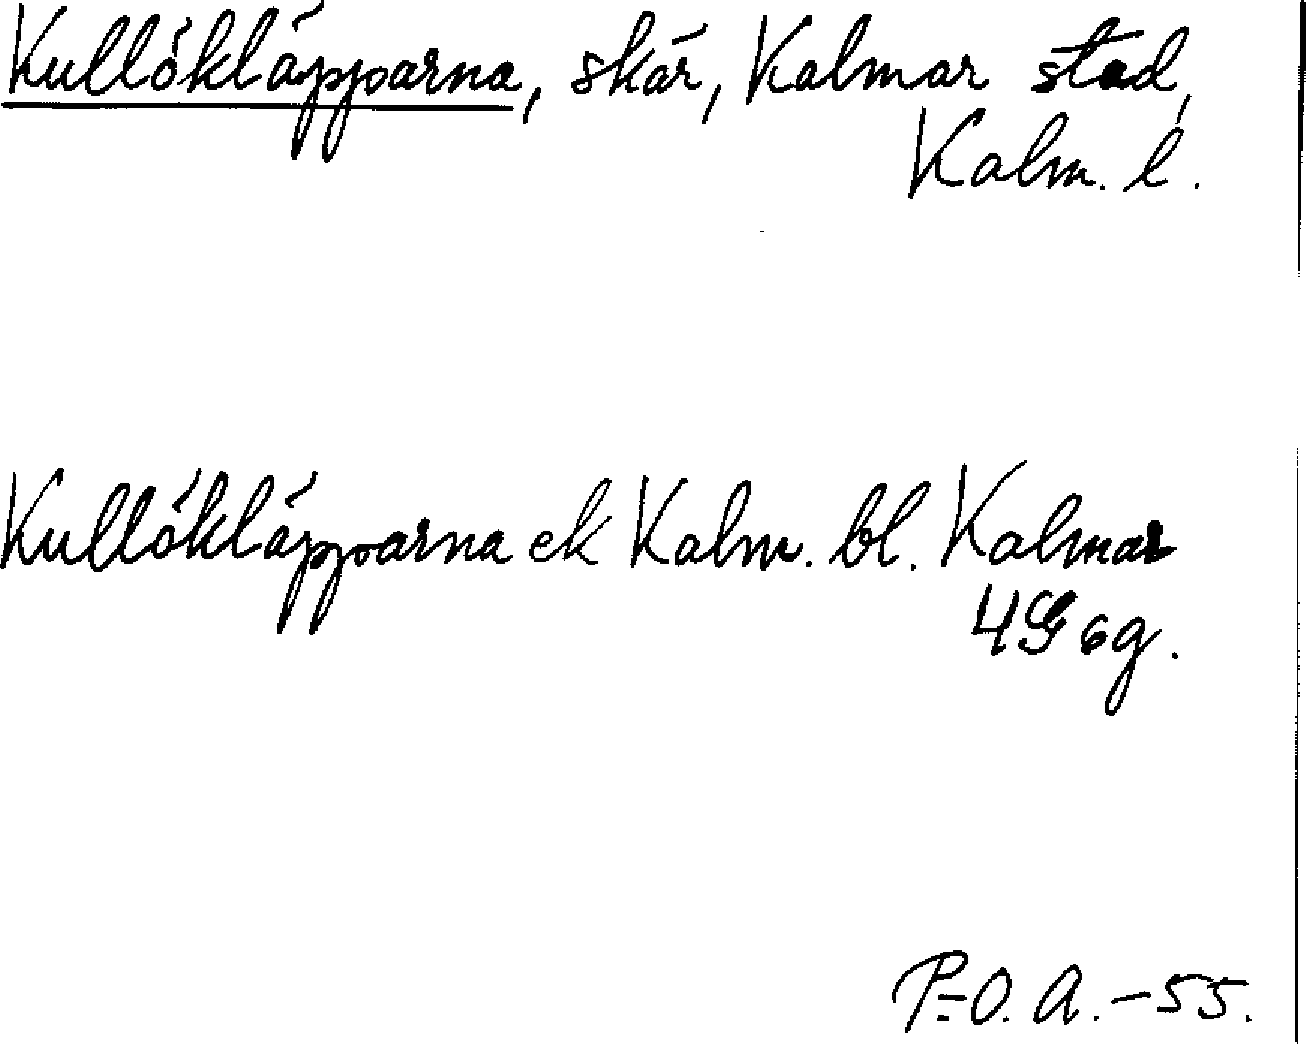 Kullökläpparna, skär, Kalmar stad,
Kalm. l.
Kullökläpparna ek Kalm. bl. Kalmar
4G 6g.
P-O. A. - 55.